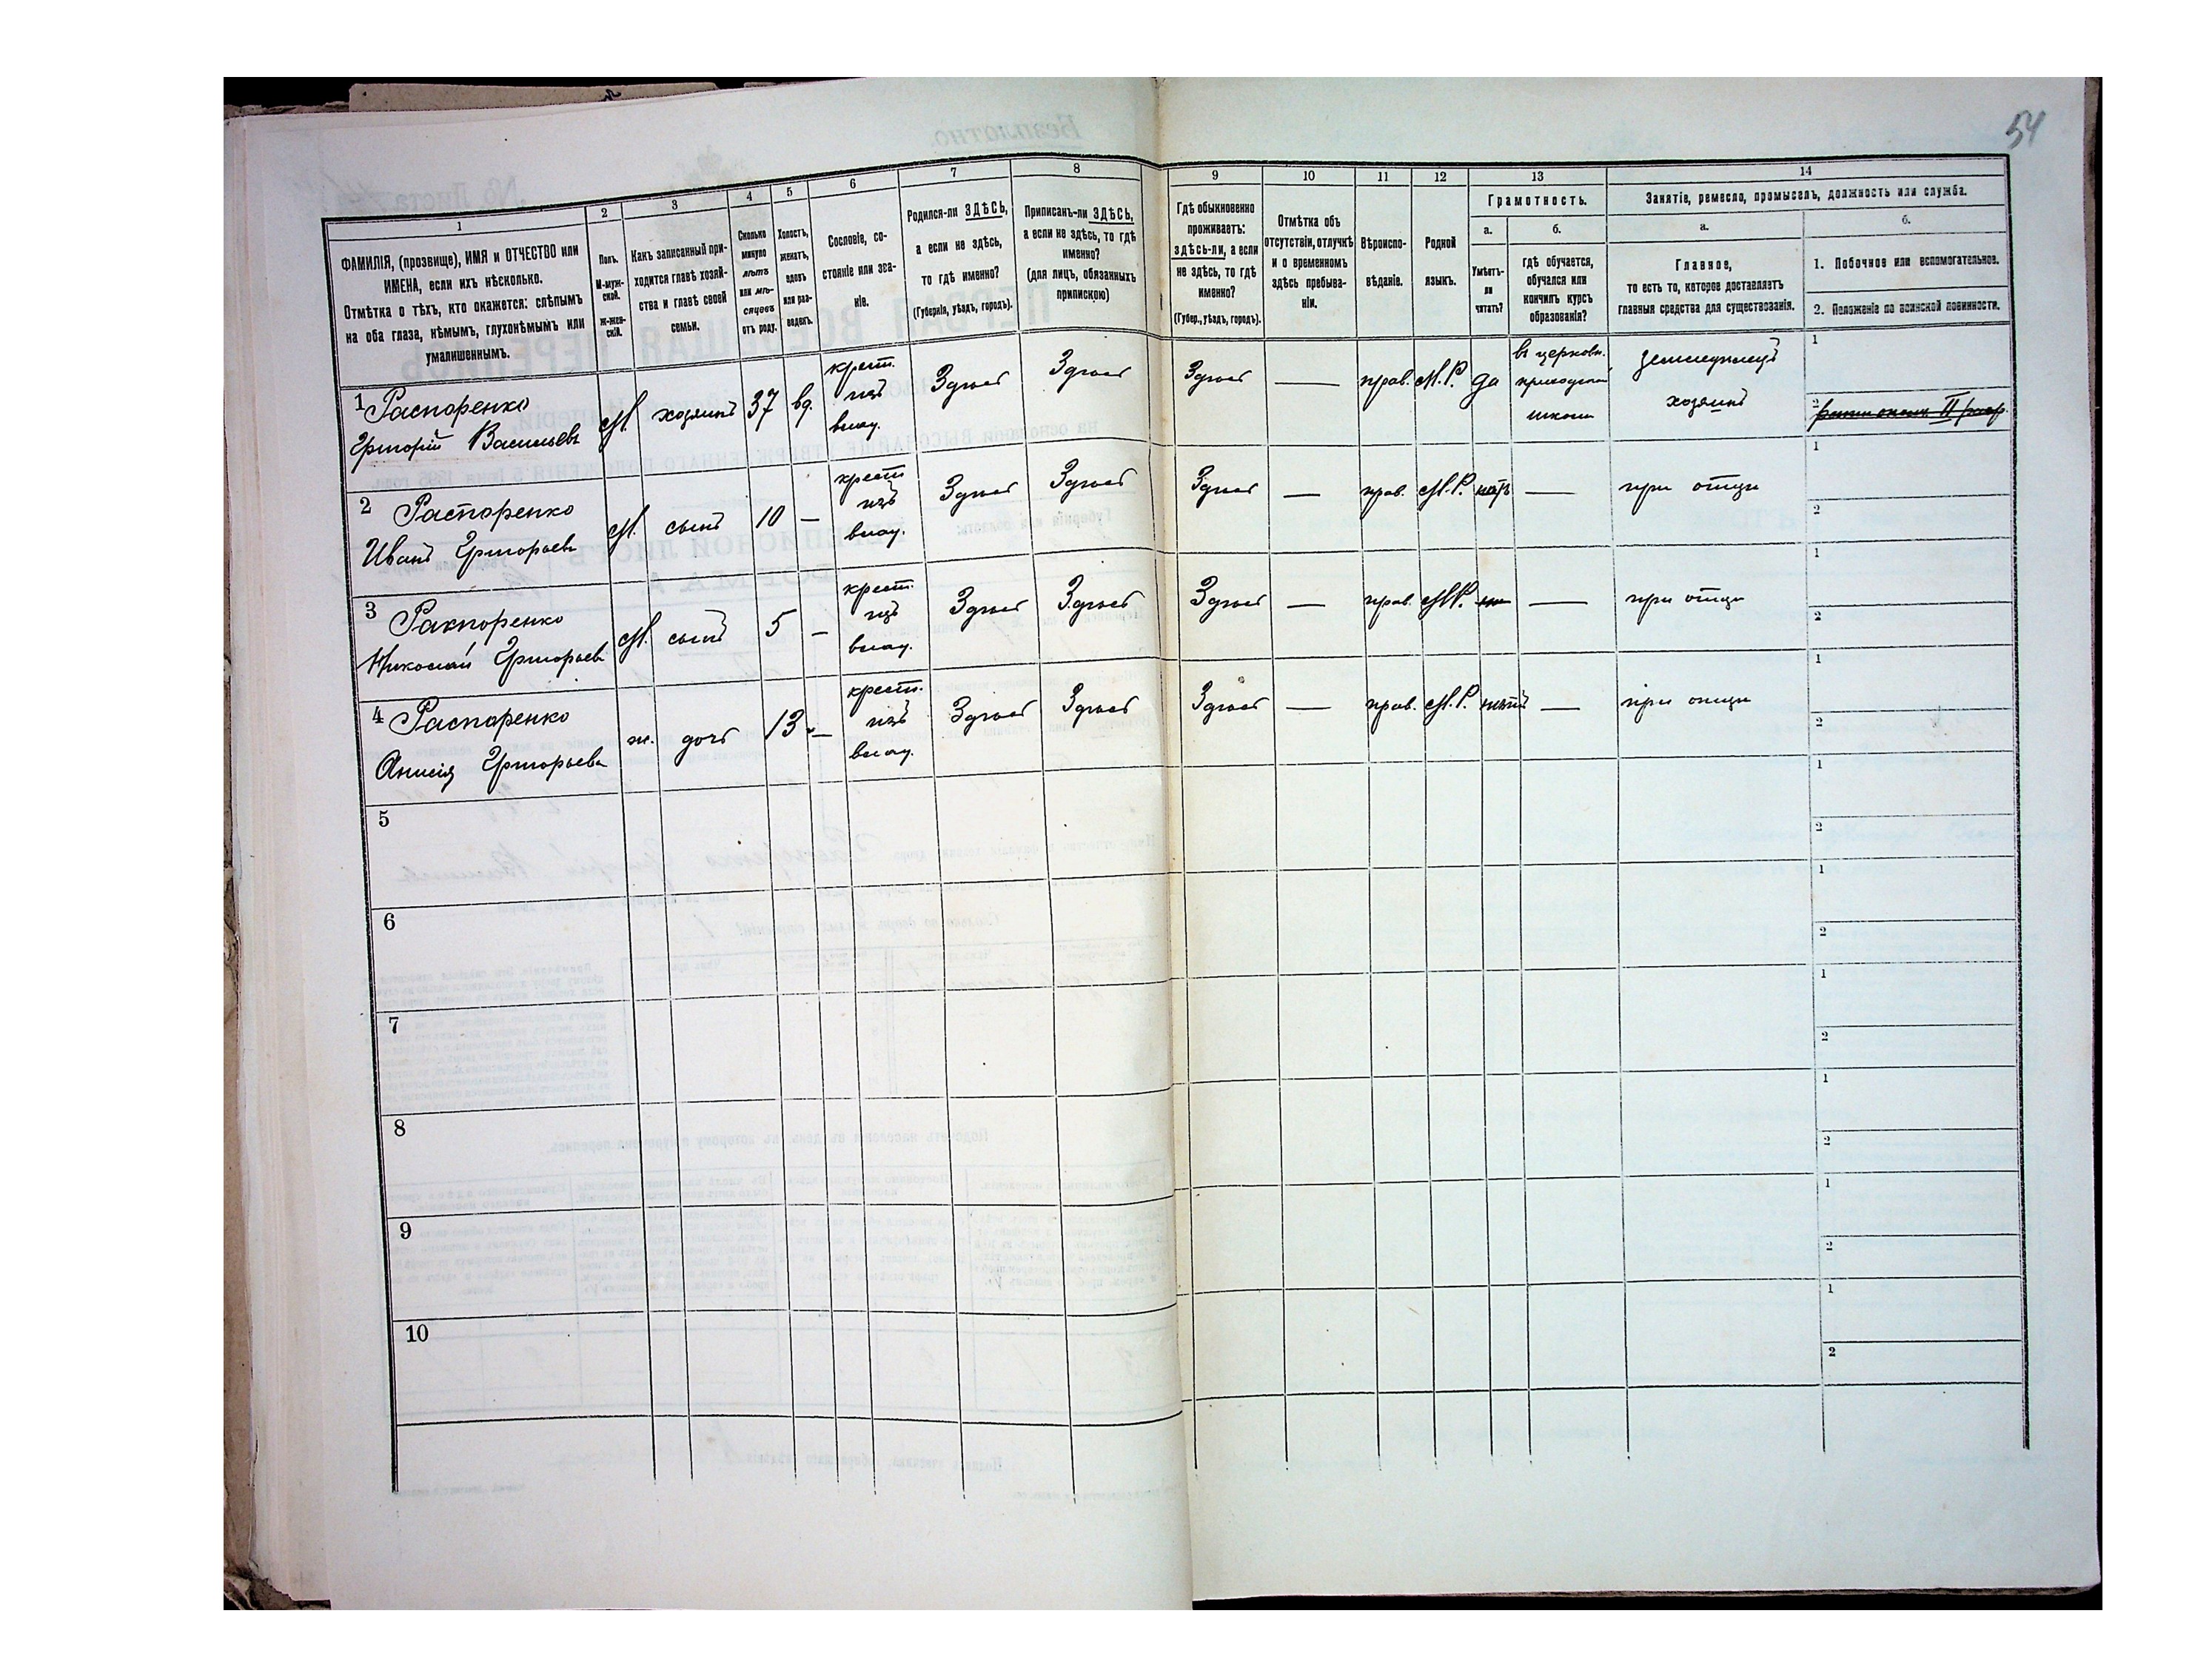 54
1
2
3
4
5
6
7
8
9
10
11
12
13
14
ФАМИЛІЯ, (прозвище), ИМЯ и ОТЧЕСТВО или
ИМЕНА, если ихъ нѣсколько.
Отмѣтка о тѣхъ, кто окажется: слѣпымъ
на оба глаза, нѣмымъ, глухонѣмымъ или
умалишеннымъ.
Полъ.
М-муж-
ской.
Ж-жен-
скій.
Какъ записанный при-
ходится главѣ хозяй-
ства и главѣ своей
семьи.
Сколько
минуло
лѣтъ
или мѣ-
сяцевъ
отъ роду.
Холостъ,
женатъ,
вдовъ
или раз-
веденъ.
Сословіе, со-
стояніе или зва-
ніе.
Родился-ли ЗДѢСЬ,
а если не здѣсь,
то гдѣ именно?
(Губернія, уѣздъ, городъ).
Приписанъ-ли ЗДѢСЬ,
а если не здѣсь, то гдѣ
именно?
(для лицъ, обязанныхъ
припискою)
Гдѣ обыкновенно
проживаетъ:
здѣсь-ли, а если
не здѣсь, то гдѣ
именно?
(Губер., уѣздъ, городъ).
Отмѣтка объ
отсутствіи, отлучкѣ
и о временномъ
здѣсь пребыва-
ніи.
Вѣроиспо-
вѣданіе.
Родной
языкъ.
Грамотность.
а.
б.
Умѣетъ-
ли
читать?
гдѣ обучается,
обучался или
кончилъ курсъ
образованія?
Занятіе, ремесло, промыселъ, должность или служба.
а.
б.
Главное,
то есть то, которое доставляетъ
главныя средства для существованія.
1. Побочное или вспомогательное.
2. Положеніе по воинской повинности.
1 Распоренко
Григорій Васильевъ
М. хозяинъ 37 вд.
крест.
изъ
влад.
Здѣсь Здѣсь Здѣсь — прав. М.Р. да
въ церковн.
приходской
школѣ
земледѣлецъ
хозяинъ
1
2
2 Распоренко
Иванъ Григорьевъ
М. сынъ 10 —
крест.
изъ
влад.
Здѣсь Здѣсь Здѣсь — прав. М.Р. нѣтъ — при отцѣ
1
2
3 Распоренко
Николай Григорьевъ
М. сынъ 5 —
крест.
изъ
влад.
Здѣсь Здѣсь Здѣсь — прав. М.Р. — при отцѣ
1
2
4 Распоренко
Анисія Григорьева
ж. дочь 13 —
крест.
изъ
влад.
Здѣсь Здѣсь Здѣсь — прав. М.Р. нѣтъ — при отцѣ
1
2
5
1
2
6
1
2
7
1
2
8
1
2
9
1
2
10
1
2